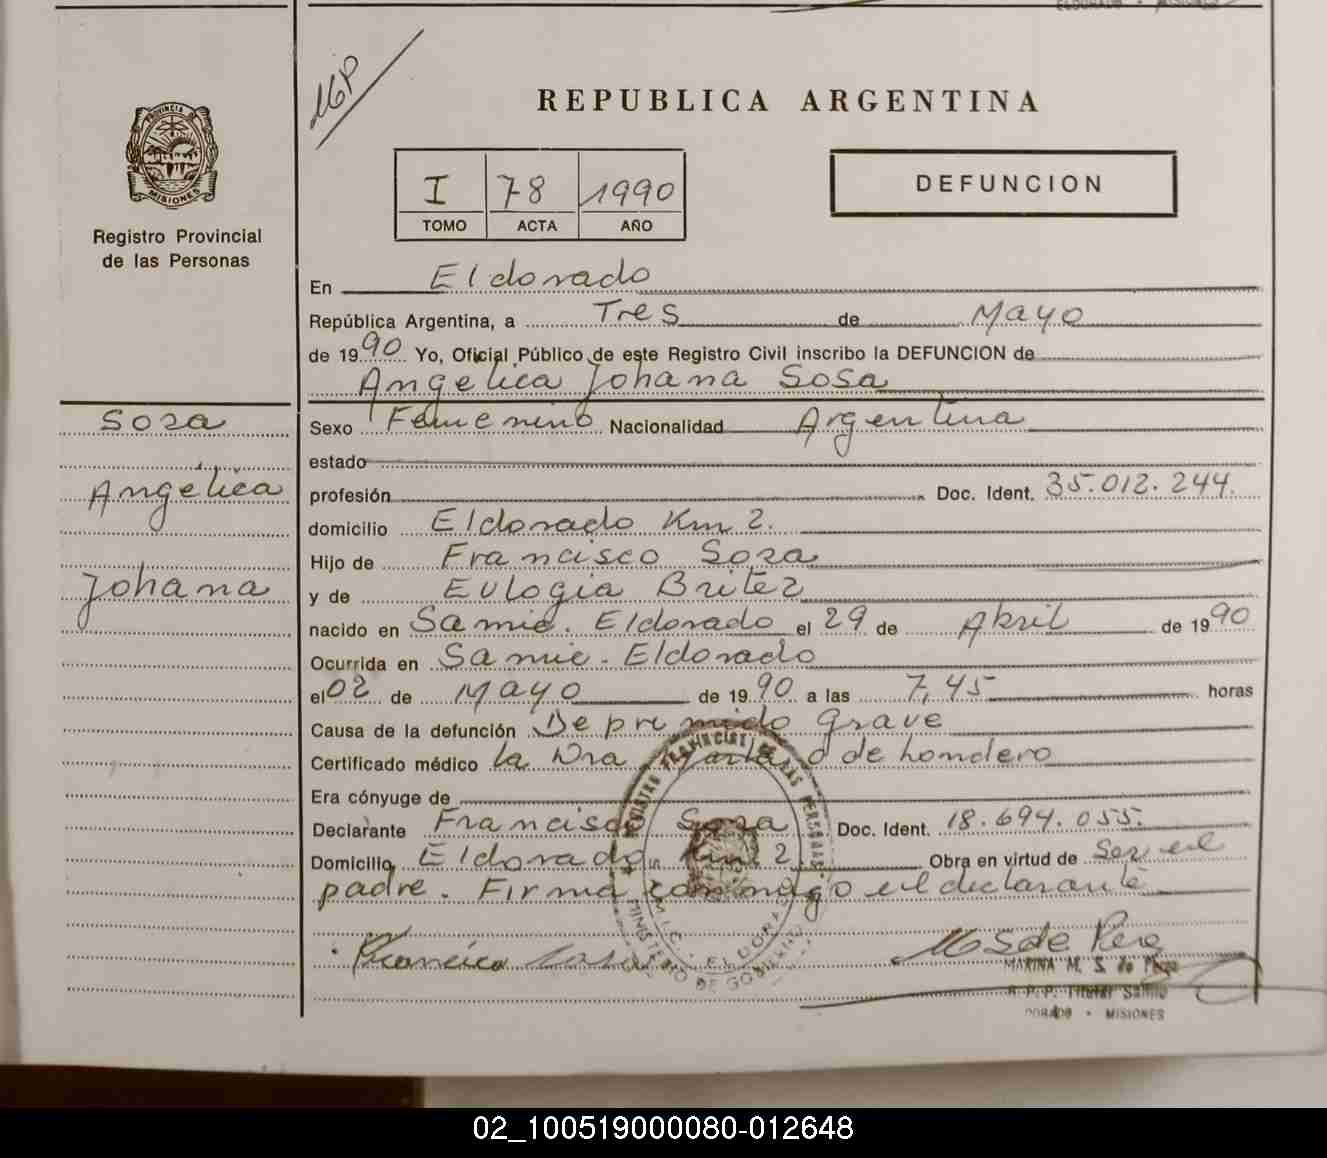 ELDORADO - MISIONES
PROVINCIA DE
MISIONES
Registro Provincial
de las Personas
REPUBLICA ARGENTINA
I 78 1990
TOMO ACTA AÑO
DEFUNCION
En Eldorado
República Argentina, a Tres de Mayo
de 1990 Yo, Oficial Público de este Registro Civil inscribo la DEFUNCION de
Angelica Johana Sosa
Sosa
Angélica
Johana
Sexo Femenino Nacionalidad Argentina
estado
profesión Doc. Ident. 35.012.244.
domicilio Eldorado Km 2.
Hijo de Francisco Sosa
y de Eulogia Britez
nacido en Samic. Eldorado el 29 de Abril de 1990
Ocurrida en Samic. Eldorado
el 02 de Mayo de 1990 a las 7,45 horas
Causa de la defunción Deprimido grave
Certificado médico la Dra de hondero
Era cónyuge de
Declarante Francisco Sosa Doc. Ident. 18.694.055.
Domicilio Eldorado Km 2. Obra en virtud de Ser el
padre. Firma conmigo el declarante
REGISTRO PROVINCIAL DE LAS PERSONAS
MINISTERIO DE GOBIERNO
ELDORADO
MARINA M. S. de Pero
R.P.P. Titular Samic
DORADO - MISIONES
02_100519000080-012648